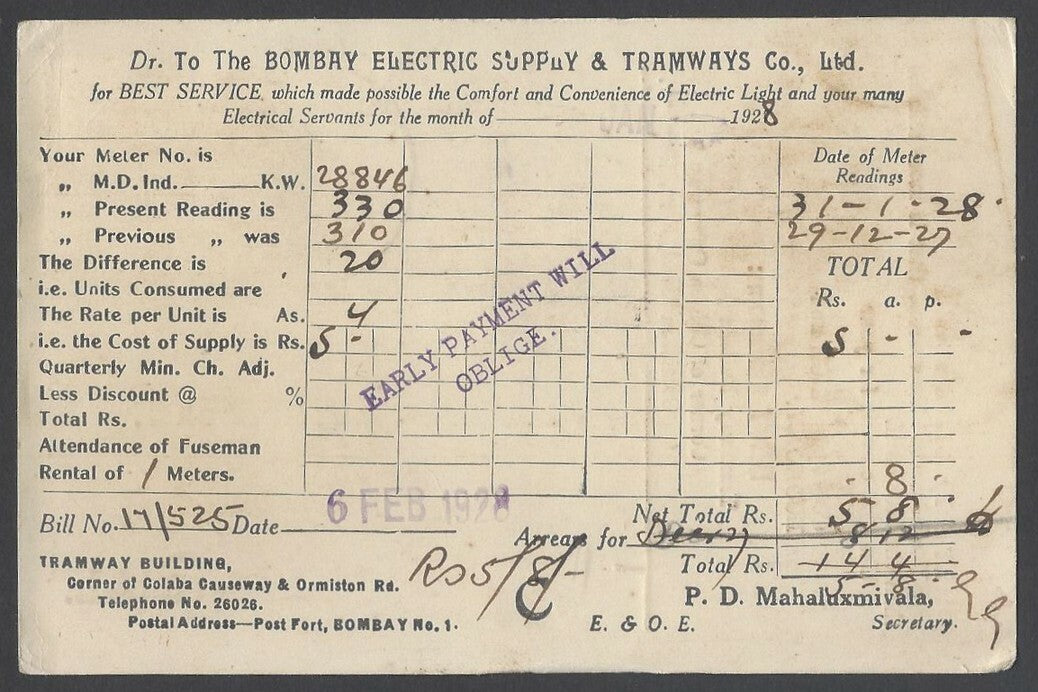 Dr. To The BOMBAY ELECTRIC SUPPLY & TRAMWAYS Co., Ltd.
for BEST SERVICE, which made possible the Comfort and Convenience of Electric Light and your many
Electrical Servants for the month of 1928
Your Meter No. is
Date of Meter Readings
„ M.D. Ind. K.W. 28846
„ Present Reading is 330 31-1-28.
„ Previous „ was 310 29-12-27
The Difference is 20 TOTAL
i.e. Units Consumed are Rs. a. p.
The Rate per Unit is As. 4
i.e. the Cost of Supply is Rs. 5 - 5 - -
Quarterly Min. Ch. Adj.
Less Discount @ %
Total Rs.
Attendance of Fuseman
Rental of 1 Meters. - 8 -
EARLY PAYMENT WILL
OBLIGE.
Bill No. 17/525 Date 6 FEB 1928 Net Total Rs. 5 8
Arrears for 8 12
TRAMWAY BUILDING, Total Rs. 14 4
Corner of Colaba Causeway & Ormiston Rd. Rs 5/8/- 5 - 8 -
Telephone No. 26026. P. D. Mahaluxmivala,
Postal Address—Post Fort, BOMBAY No. 1. E. & O. E. Secretary.